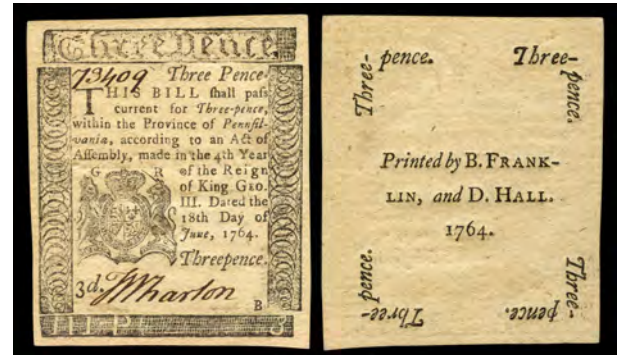 Three Pence.
73409 Three Pence.
THIS BILL ſhall paſs
current for Three-pence,
within the Province of Pennſil-
vania, according to an Act of
Aſſembly, made in the 4th Year
G R of the Reign
of King GEO.
III. Dated the
18th Day of
June, 1764.
Threepence.
3d. Wharton
B
Three-pence.
Three-pence.
Printed by B. FRANK-
LIN, and D. HALL.
1764.
Three-pence.
Three-pence.